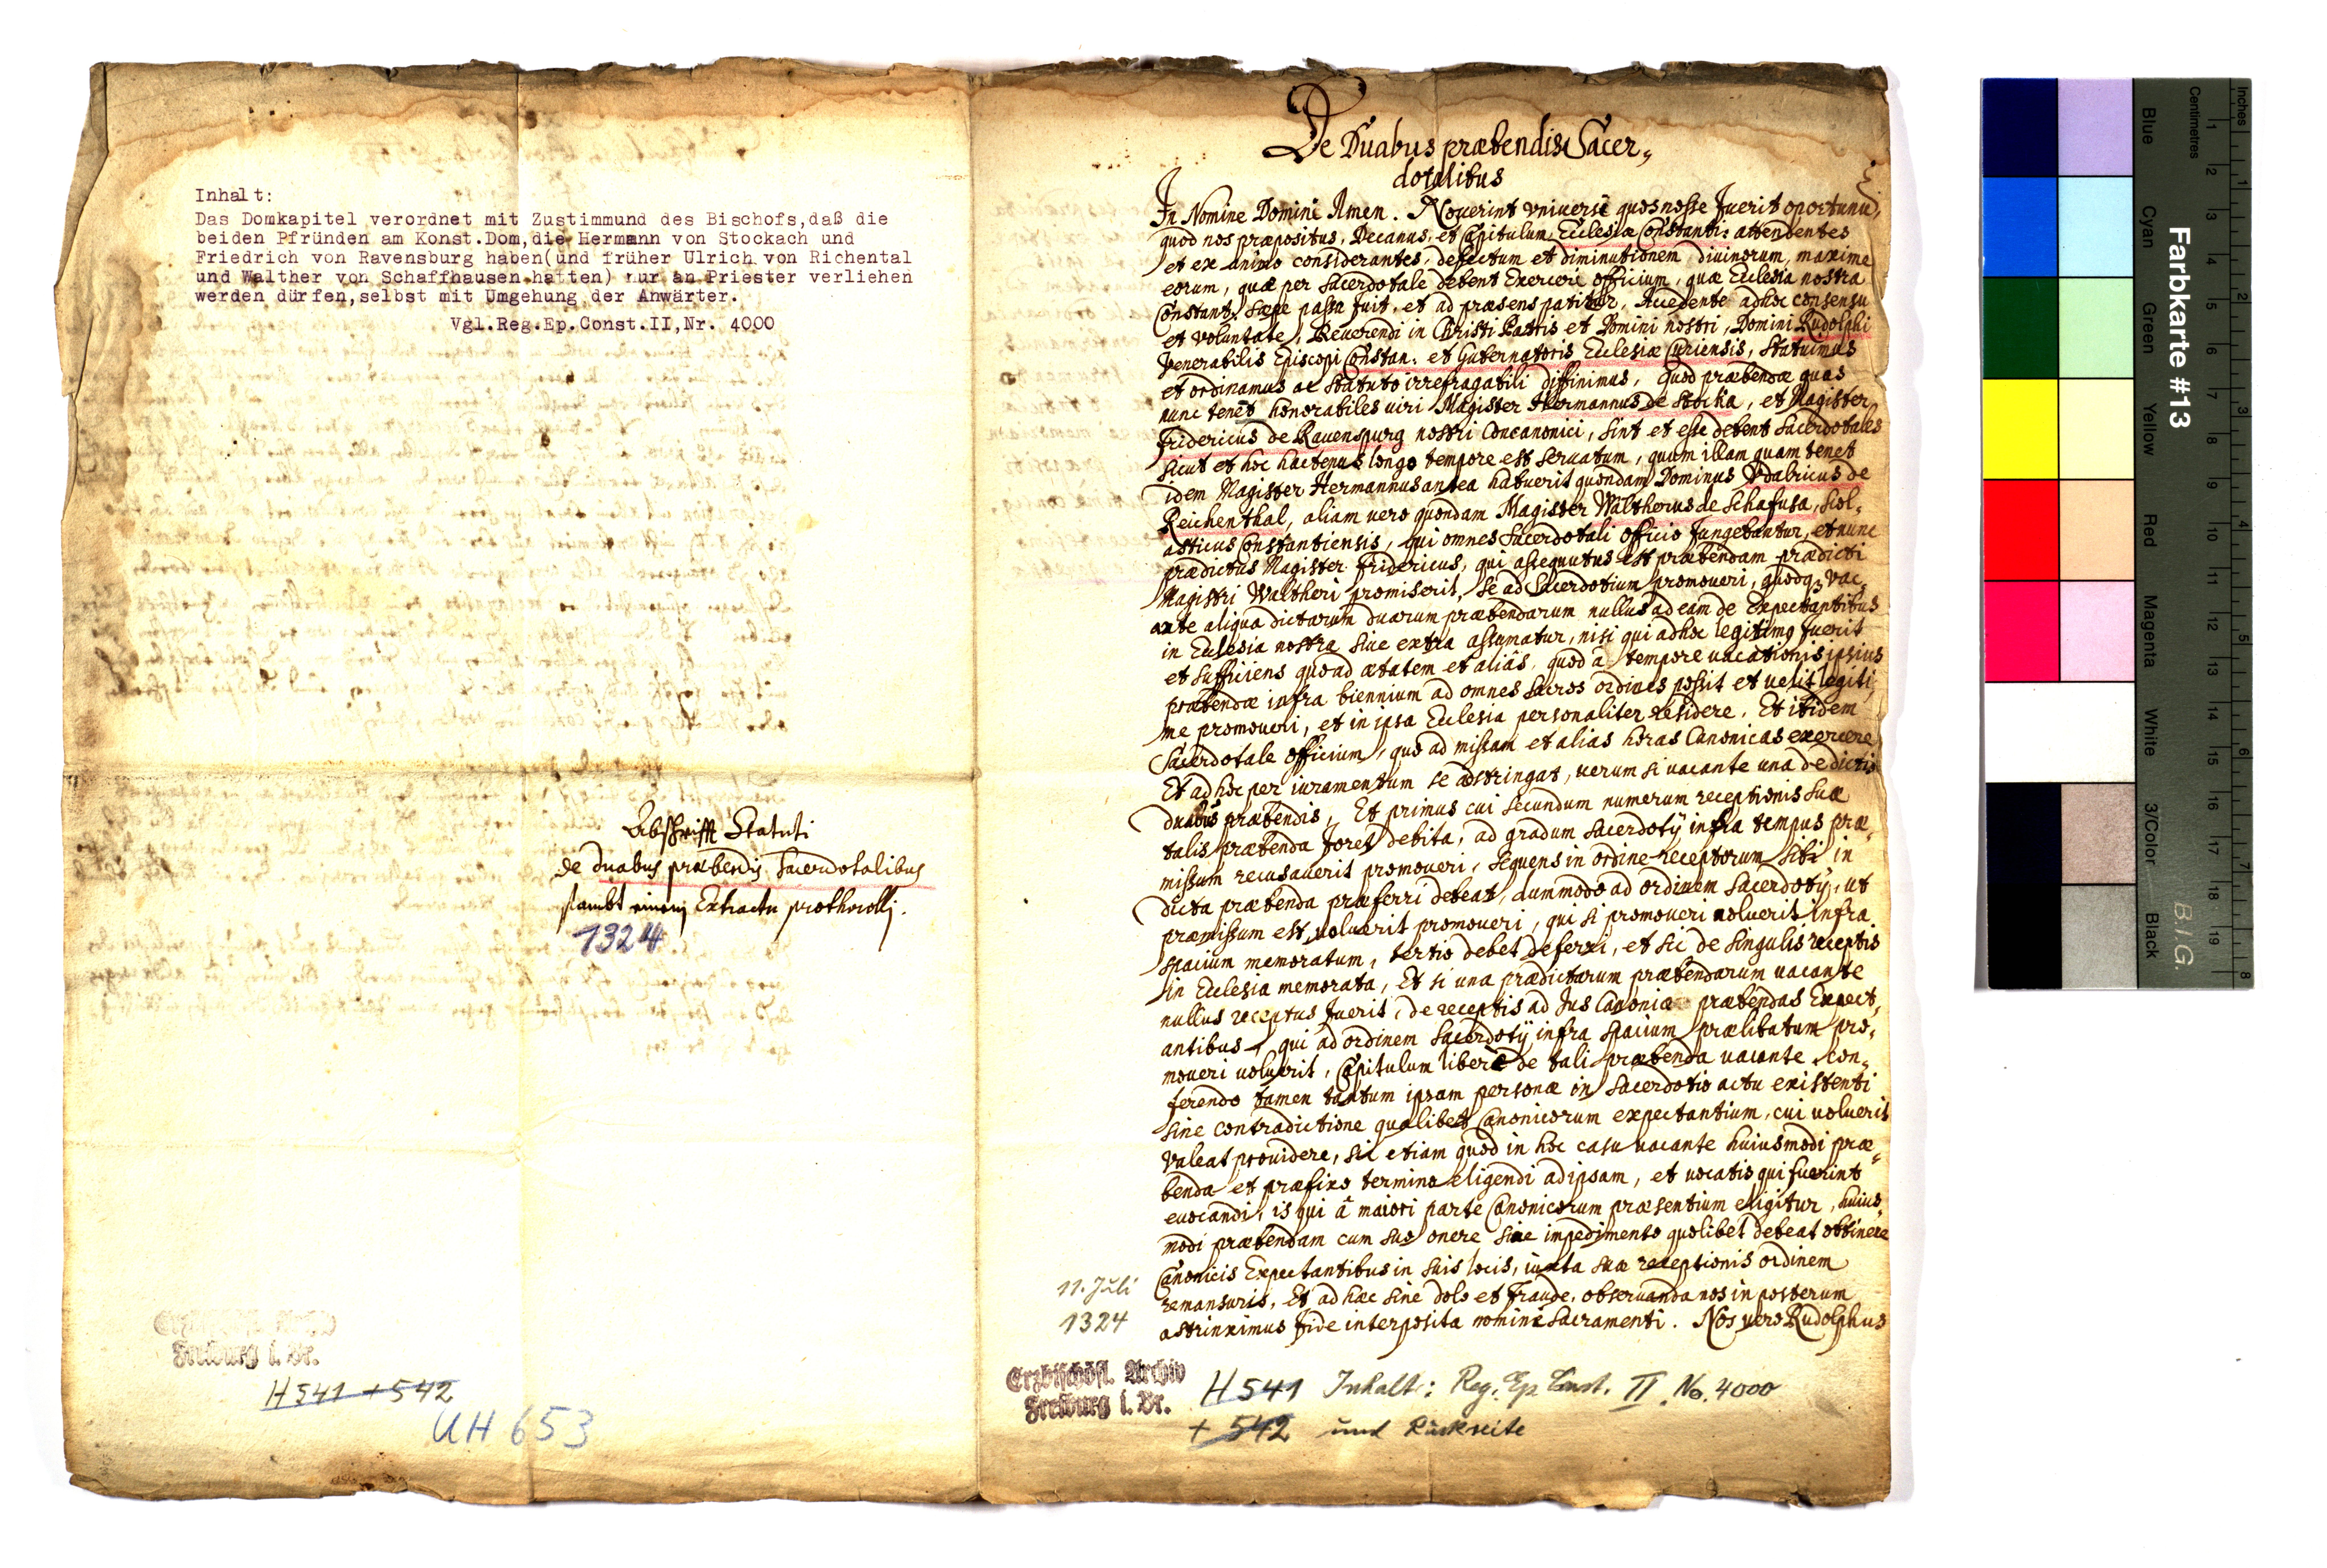 Inhalt:
Das Domkapitel verordnet mit Zustimmund des Bischofs,daß die
beiden Pfründen am Konst.Dom,die Hermann von Stockach und
Friedrich von Ravensburg haben(und früher Ulrich von Richental
und Walther von Schaffhausen hatten) nur an Priester verliehen
werden dürfen,selbst mit Umgehung der Anwärter.
Vgl.Reg.Ep.Const.II,Nr. 4000
Abschrifft Statuti
de duabus præbendis Sacerdotalibus
sambt einem Extractu prothocolli.
1324
Erzbischöfl. Archiv
Freiburg i. Br.
H 541 + 542
UH 653
De Duabus præbendis Sacer„
dotalibus
In Nomine Domini Amen. Noverint vniversi quos nosse fuerit oportunũ,
quod nos præpositus, Decanus, et Capitulum Ecclesiæ Constanti: attendentes
et ex animo considerantes, defectum et diminutionem diuinorum, maxime
eorum, quæ per Sacerdotale debent Exerceri officium, quæ Ecclesia nostra
Constant. sæpe passa fuit, et ad præsens patitur, Accedente adhoc consensu
et voluntate, Reuerendi in Christi Patris et Domini nostri, Domini Rudolphi
Venerabilis Episcopi Constan: et Gubernatoris Ecclesiæ Curiensis, Statuimus
et ordinamus ac statuto irrefragabili diffinimus, Quod præbendæ quas
nunc tenẽt honorabiles viri Magister Hermannus de Stocka, et Magister
Fridericus de Rauenspurg nostri Concanonici, sint et esse debent Sacerdotales
sicut et hoc hactenus longo tempore est seruatum, quum illam quam tenet
idem Magister Hermannus antea habuerit quondam Dominus Vdalricus de
Reichenthal, aliam vero quondam Magister Waltherus de Schafusa, Scol„
asticus Constantiensis, qui omnes Sacerdotali officio fungebantur, et nunc
prædictus Magister Fridericus, qui assequutus est præbendam prædicti
Magistri Waltheri promiserit, se ad Sacerdotium promoueri, quodq3 vac„
ante aliqua dictarum duarum præbendarum nullus ad eam de Expectantibus
in Ecclesia nostra siue extra assumatur, nisi qui adhoc legitimo fuerit
et sufficiens quoad ætatem et aliâs, quod â tempore uacationis ipsius
præbendæ infra biennium ad omnes Sacros ordines possit et uelit legiti„
me promoueri, et in ipsa Ecclesia personaliter residere, Et ibidem
Sacerdotale officium, quo ad missam et alias horas Canonicas exercere
Et ad hoc per iuramentum se adstringat, uerum si uacante una de dictis
duabus præbendis, Et primus cui secundum numerum receptionis suæ
talis præbenda foret debita, ad gradum Sacerdotÿ infra tempus præ„
missum recusauerit promoueri, sequens in ordine receptorum sibi in
dicta præbenda præferri debeat, dummodo ad ordinem Sacerdotÿ, ut
præmissum est, uoluerit promoueri, qui si promoueri noluerit infra
spacium memoratum, tertio debet deferri, et sic de singulis receptis
in Ecclesia memorata, Et si una prædictarum præbendarum uacante
nullus receptus fuerit, de receptis ad Jus Canoniæ præbendas Expect„
antibus, qui ad ordinem Sacerdotÿ infra spacium prælibatum pro„
moueri uoluerit, Capitulum liberè de tali præbenda uacante con„
ferendo tamen tantum ipsam personæ in Sacerdotio actu existenti
sine contradictione qualibet Canonicorum expectantium, cui uoluerit
Valeat prouidere, sic etiam quod in hoc casu uacante huiusmodi præ„
benda et præfixo termino eligendi ad ipsam, et uocatis qui fuerint
euocandi, is qui â maiori parte Canonicorum præsentium eligitur, huius„
modi præbendam cum suo onere sine impedimento quolibet debeat obtinere
Canonicis Expectantibus in suis locis, iuxta suæ receptionis ordinem
remansuris, Et ad hæc sine dolo et fraude, obseruanda nos in posterum
astrinximus fide interposita nomine Sacramenti. Nos vero Rudolphus
11. Juli
1324
Erzbischöfl. Archiv
Freiburg i. Br.
H 541 Inhalt: Reg. Ep. Const. II. No. 4000
+ 542 und Rückseite
Farbkarte #13
Blue Cyan Green Yellow Red Magenta White 3/Color Black
B.I.G.
Centimetres
1 2 3 4 5 6 7 8 9 10 11 12 13 14 15 16 17 18 19
Inches
1 2 3 4 5 6 7 8